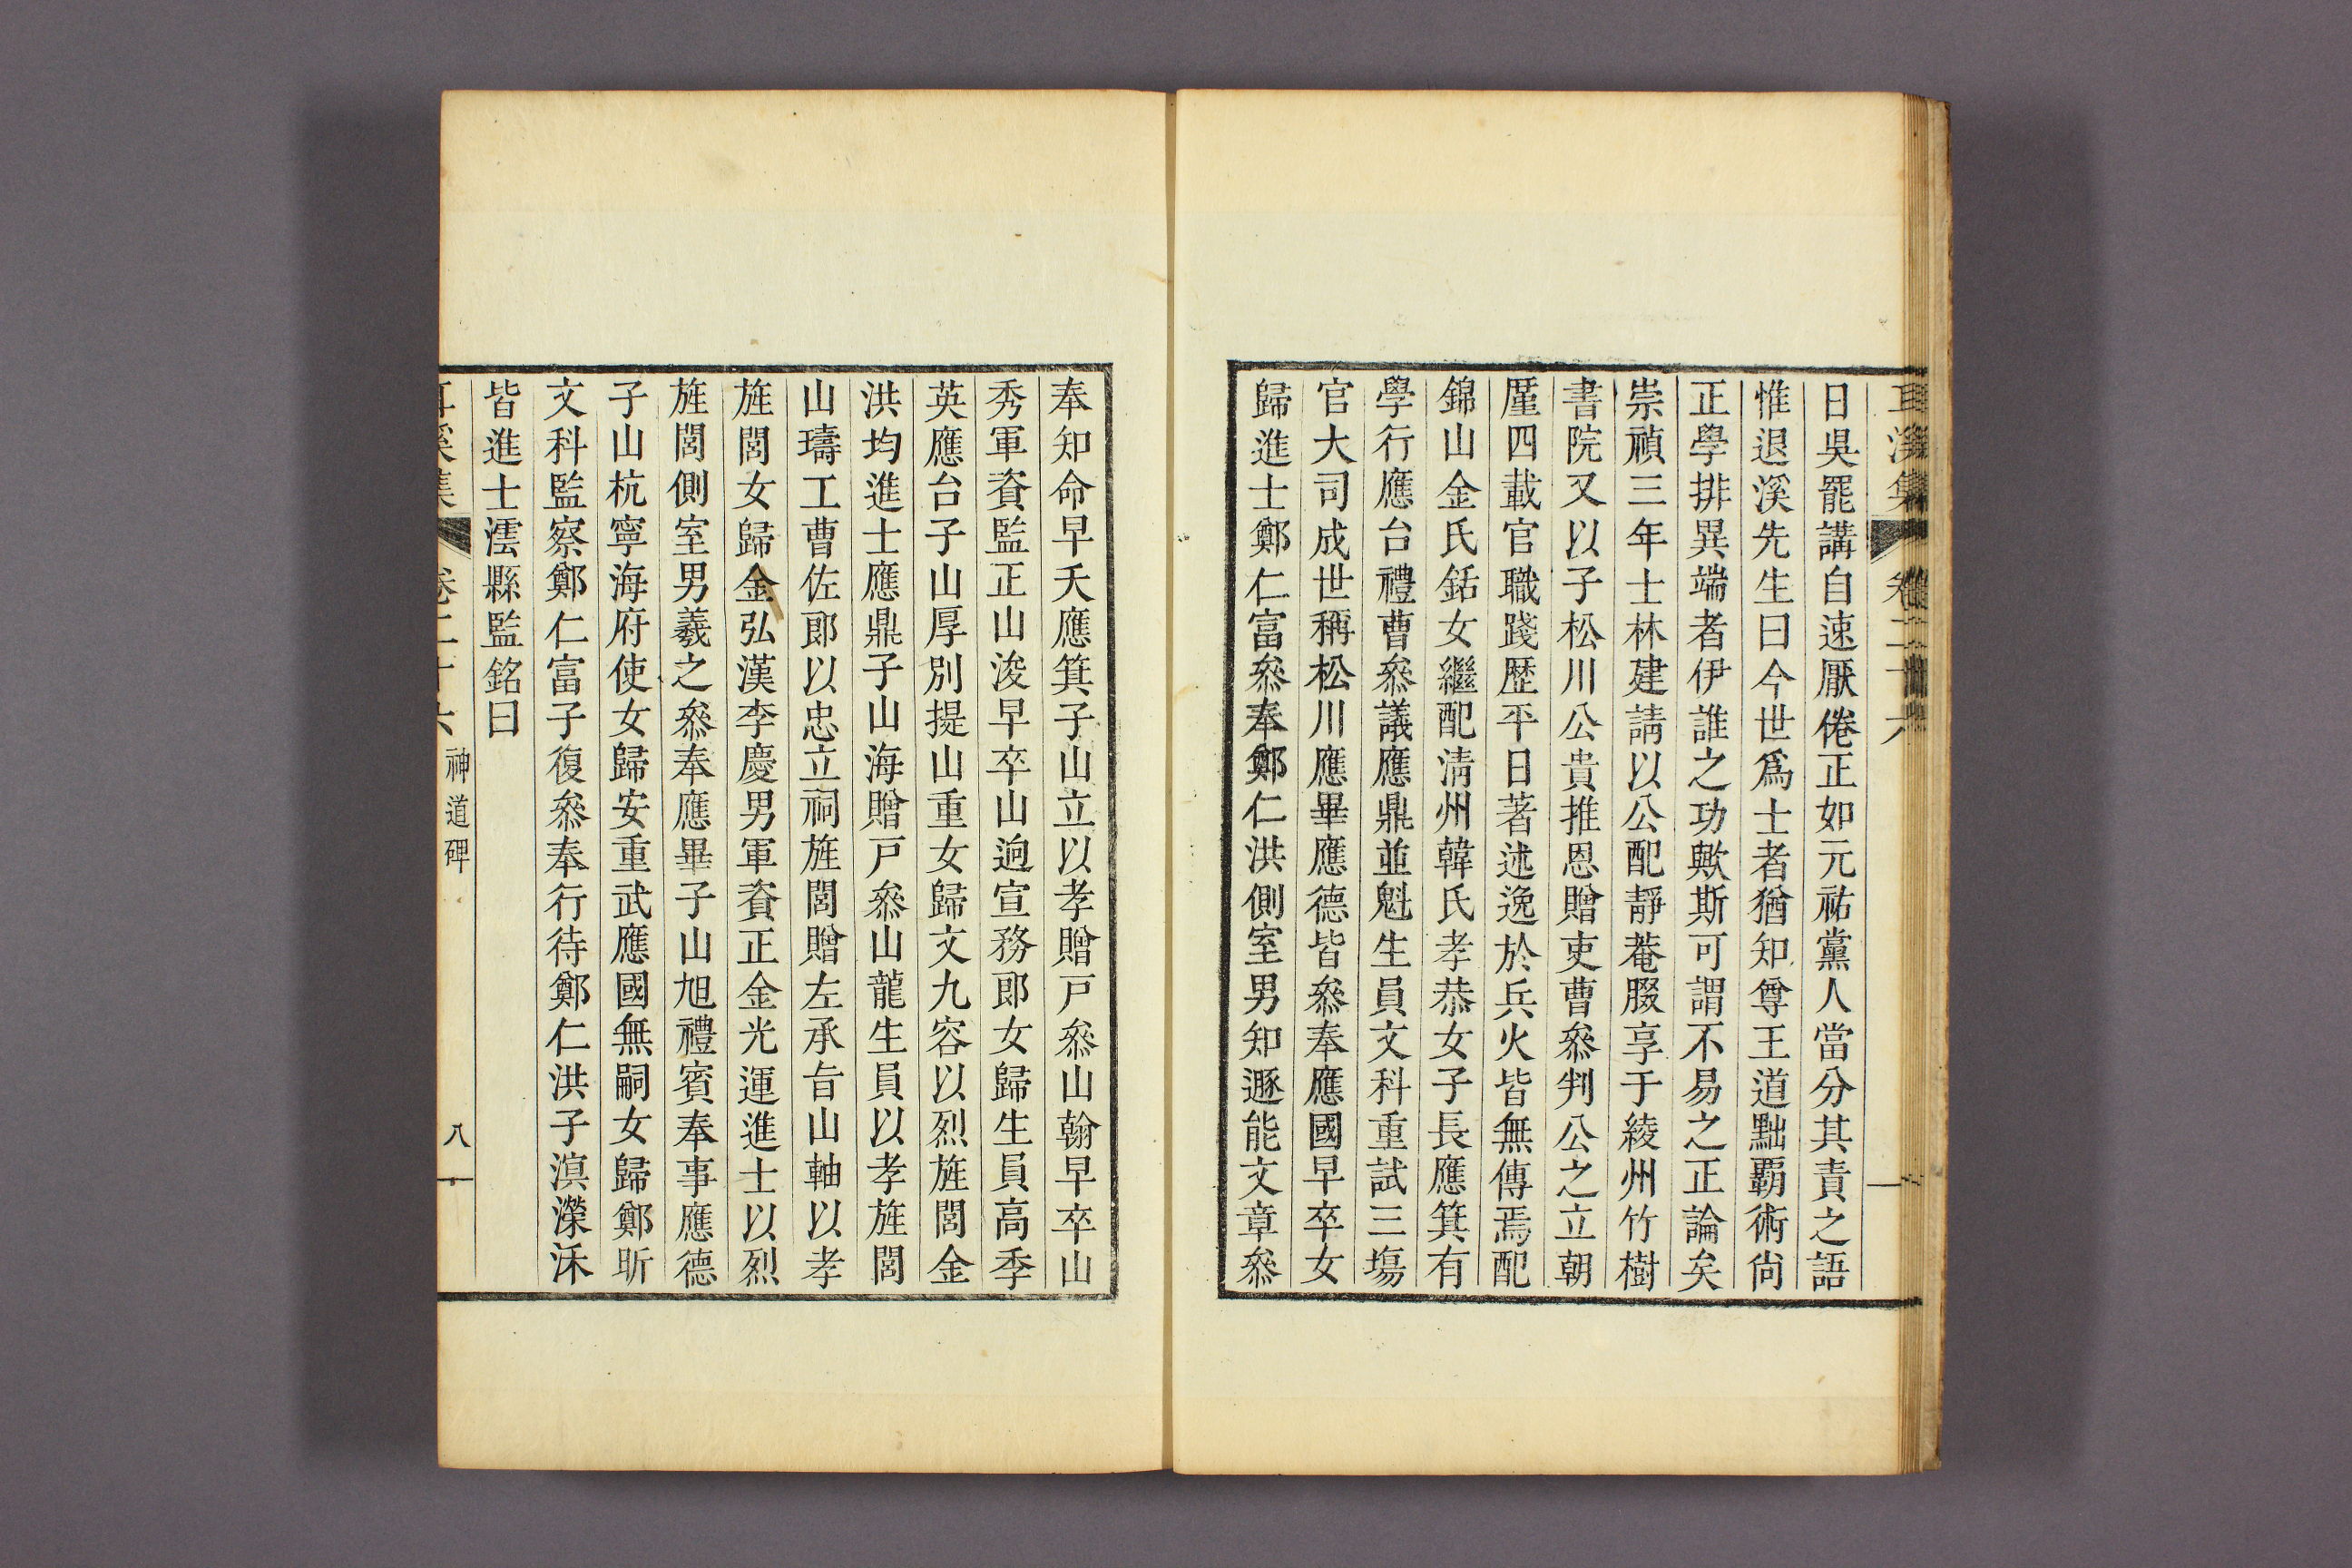 耳溪集 卷二十六
日吳罷講自速厭倦正如元祐黨人當分其責之語
惟退溪先生曰今世爲士者猶知尊王道黜覇術尙
正學排異端者伊誰之功歟斯可謂不易之正論矣
崇禎三年士林建請以公配靜菴腏享于綾州竹樹
書院又以子松川公貴推恩贈吏曹叅判公之立朝
厪四載官職踐歷平日著述逸於兵火皆無傳焉配
錦山金氏銛女繼配淸州韓氏孝恭女子長應箕有
學行應台禮曹叅議應鼎並魁生員文科重試三塲
官大司成世稱松川應畢應德皆叅奉應國早卒女
歸進士鄭仁富叅奉鄭仁洪側室男知遯能文章叅
奉知命早夭應箕子山立以孝贈戸叅山翰早卒山
秀軍資監正山浚早卒山逈宣務郎女歸生員高季
英應台子山厚別提山重女歸文九容以烈旌閭金
洪均進士應鼎子山海贈戸叅山龍生員以孝旌閭
山璹工曹佐郎以忠立祠旌閭贈左承旨山軸以孝
旌閭女歸金弘漢李慶男軍資正金光運進士以烈
旌閭側室男羲之叅奉應畢子山旭禮賓奉事應德
子山杭寧海府使女歸安重武應國無嗣女歸鄭昕
文科監察鄭仁富子復叅奉行待鄭仁洪子溟濚泺
皆進士澐縣監銘曰
耳溪集 卷二十六 神道碑 八